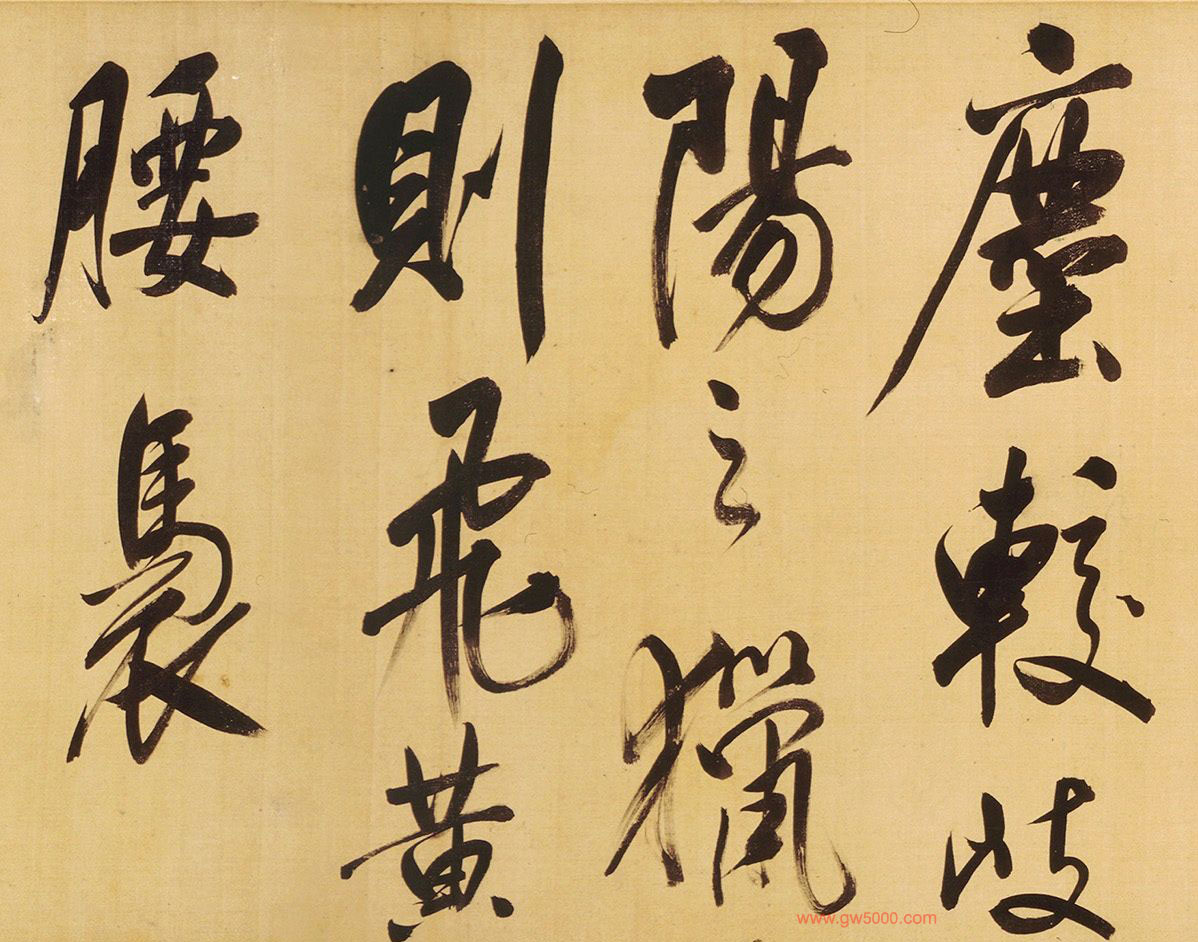 塵較岐
陽之獵
則飛黃
腰褭
www.gw5000.com